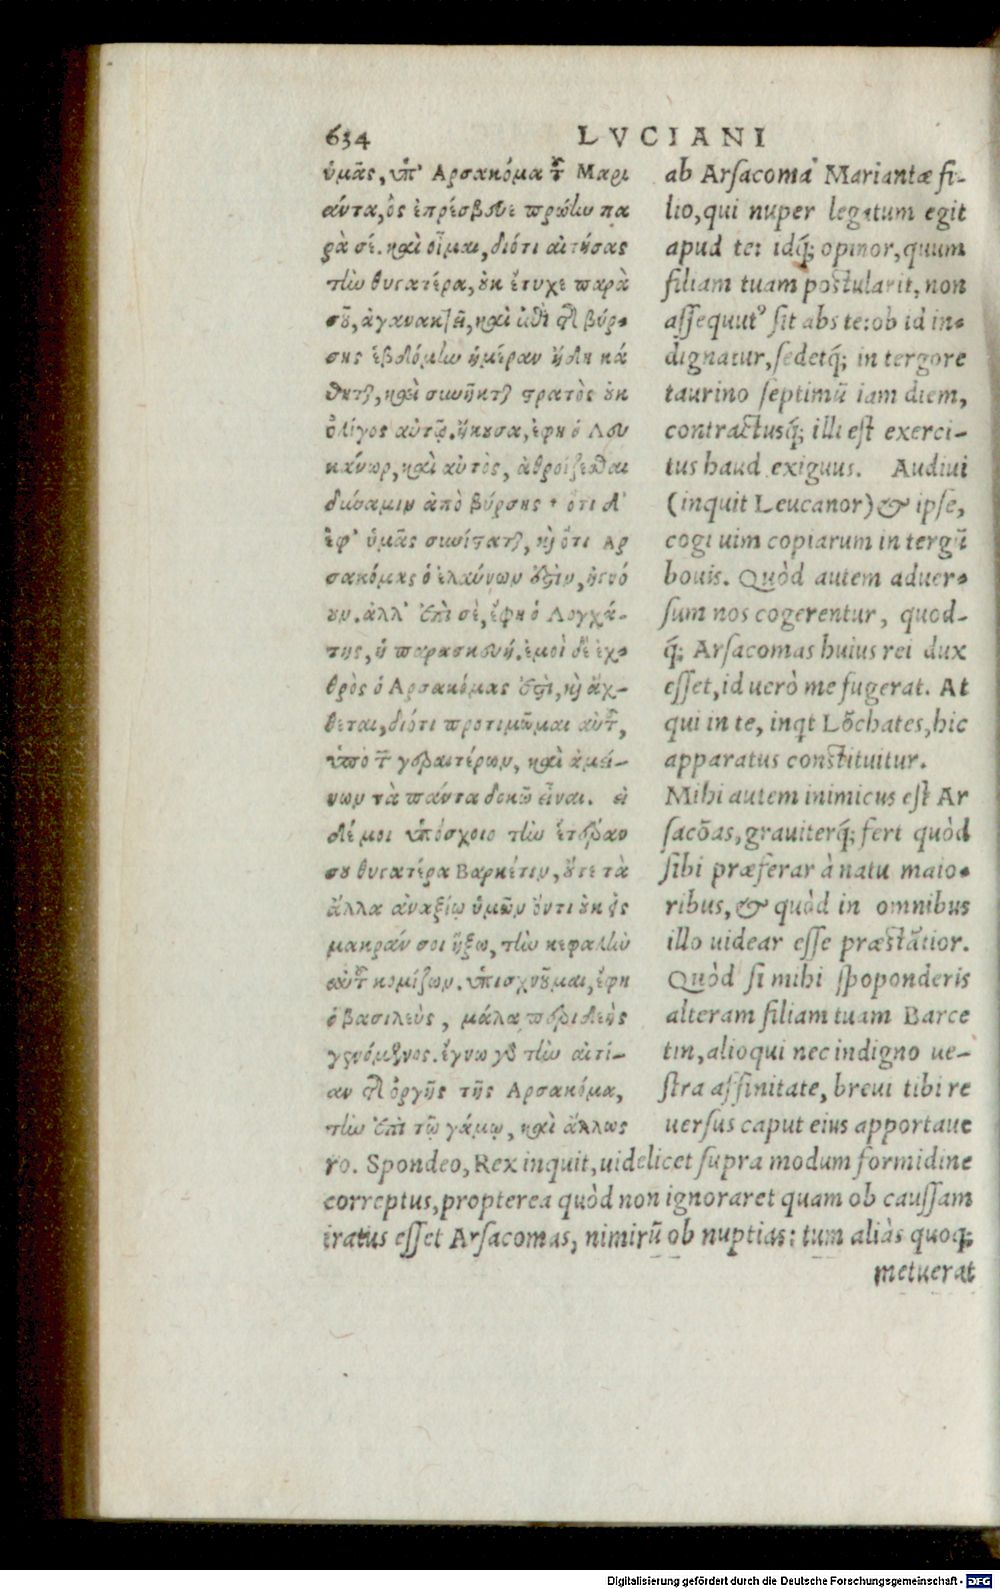 634 LVCIANI
ὑμᾶς, ὑπ' Αρσακόμα τοῦ Μαρι
άντα, ὃς ἐπρέσβευε πρώην πα
ρὰ σέ. καὶ οἶμαι, διότι αἰτήσας
τὴν θυγατέρα, οὐκ ἔτυχε παρὰ
σοῦ, ἀγανακτεῖ, καὶ ἐπὶ τῆς βύρ-
σης ἑβδόμην ἡμέραν ἤδη κά
θηται, καὶ συνῆκται στρατὸς οὐκ
ὀλίγος αὐτῷ. ἤκουσα, ἔφη ὁ Λευ
κάνωρ, καὶ αὐτὸς, ἀθροίζεσθαι
δύναμιν ἀπὸ βύρσης· ὅτι δ'
ἐφ' ὑμᾶς συνίσταται, καὶ ὅτι Αρ
σακόμας ὁ ἐλαύνων ἐστὶν, ἠγνό
ουν. ἀλλ' ἐπὶ σὲ, ἔφη ὁ Λογχά-
της, ἡ παρασκευή. ἐμοὶ δὲ ἐχ-
θρὸς ὁ Αρσακόμας ἐστὶ, καὶ ἄχ-
θεται, διότι προτιμῶμαι αὐτοῦ,
ὑπὸ τῶν γεραιτέρων, καὶ ἀμεί-
νων τὰ πάντα δοκῶ εἶναι. εἰ
δέ μοι ὑπόσχοιο τὴν ἑτέραν
σου θυγατέρα Βαρκέτιν, οὔτε τὰ
ἄλλα ἀναξίῳ ὑμῶν ὄντι οὐκ ἐς
μακράν σοι ἥξω, τὴν κεφαλὴν
αὐτοῦ κομίζων. ὑπισχνοῦμαι, ἔφη
ὁ βασιλεὺς, μάλα περιδεὴς
γενόμενος. ἔγνω γὰρ τὴν αἰτί-
αν τῆς ὀργῆς τῆς Αρσακόμα,
τὴν ἐπὶ τῷ γάμῳ, καὶ ἄλλως
ab Arsacoma Mariantæ fi-
lio, qui nuper legatum egit
apud te: idq́; opinor, quum
filiam tuam postularit, non
assequutꝰ sit abs te: ob id in-
dignatur, sedetq́; in tergore
taurino septimū iam diem,
contractusq́; illi est exerci-
tus haud exiguus. Audiui
(inquit Leucanor) & ipse,
cogi uim copiarum in tergū
bouis. Quòd autem aduer-
sum nos cogerentur, quod-
q́; Arsacomas huius rei dux
esset, id uerò me fugerat. At
qui in te, inqt Lōchates, hic
apparatus constituitur.
Mihi autem inimicus est Ar
sacōas, grauiterq́; fert quòd
sibi præferar à natu maio-
ribus, & quòd in omnibus
illo uidear esse præstātior.
Quòd si mihi spoponderis
alteram filiam tuam Barce
tin, alioqui nec indigno ue-
stra affinitate, breui tibi re
uersus caput eius apportaue
ro. Spondeo, Rex inquit, uidelicet supra modum formidine
correptus, propterea quòd non ignoraret quam ob caussam
iratus esset Arsacomas, nimirū ob nuptias: tum aliàs quoq;
metuerat
Digitalisierung gefördert durch die Deutsche Forschungsgemeinschaft - DFG